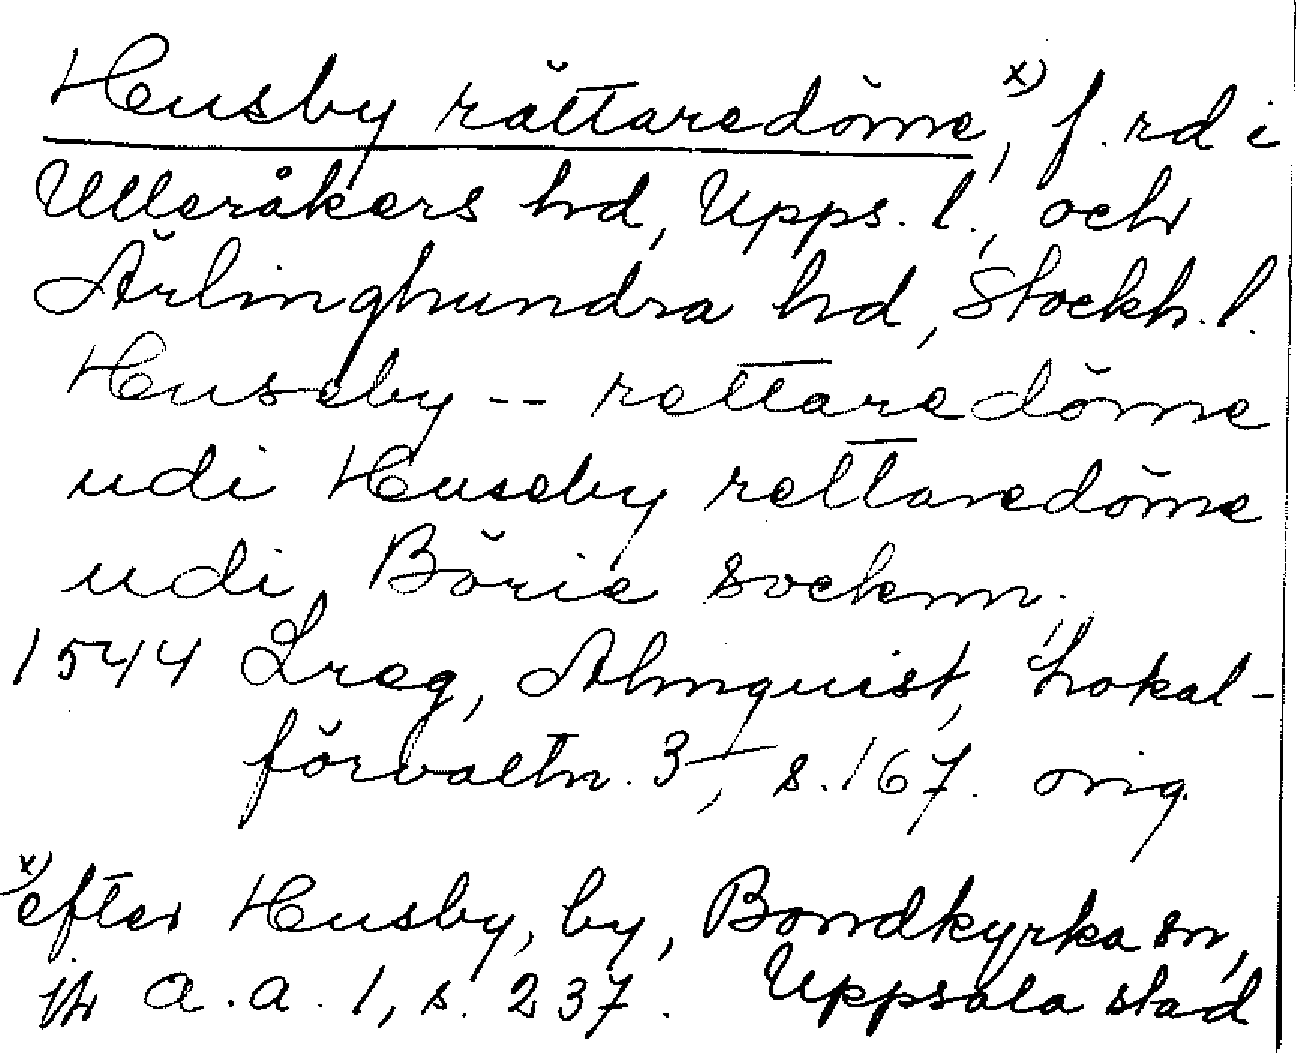 Husby rättaredöme,x) f. rd i
Ulleråkers hd, Upps. l., och
Ärlinghundra hd, Stockh. l.
Huseby -- rettaredöme
udi Huseby rettaredöme
udi Börie socknn;
1544 Lreg, Almquist, Lokal-
förvaltn. 3, s. 167. orig.
x) efter Husby, by, Bondkyrka sn,
jfr a.a. 1, s. 237. Uppsala stad